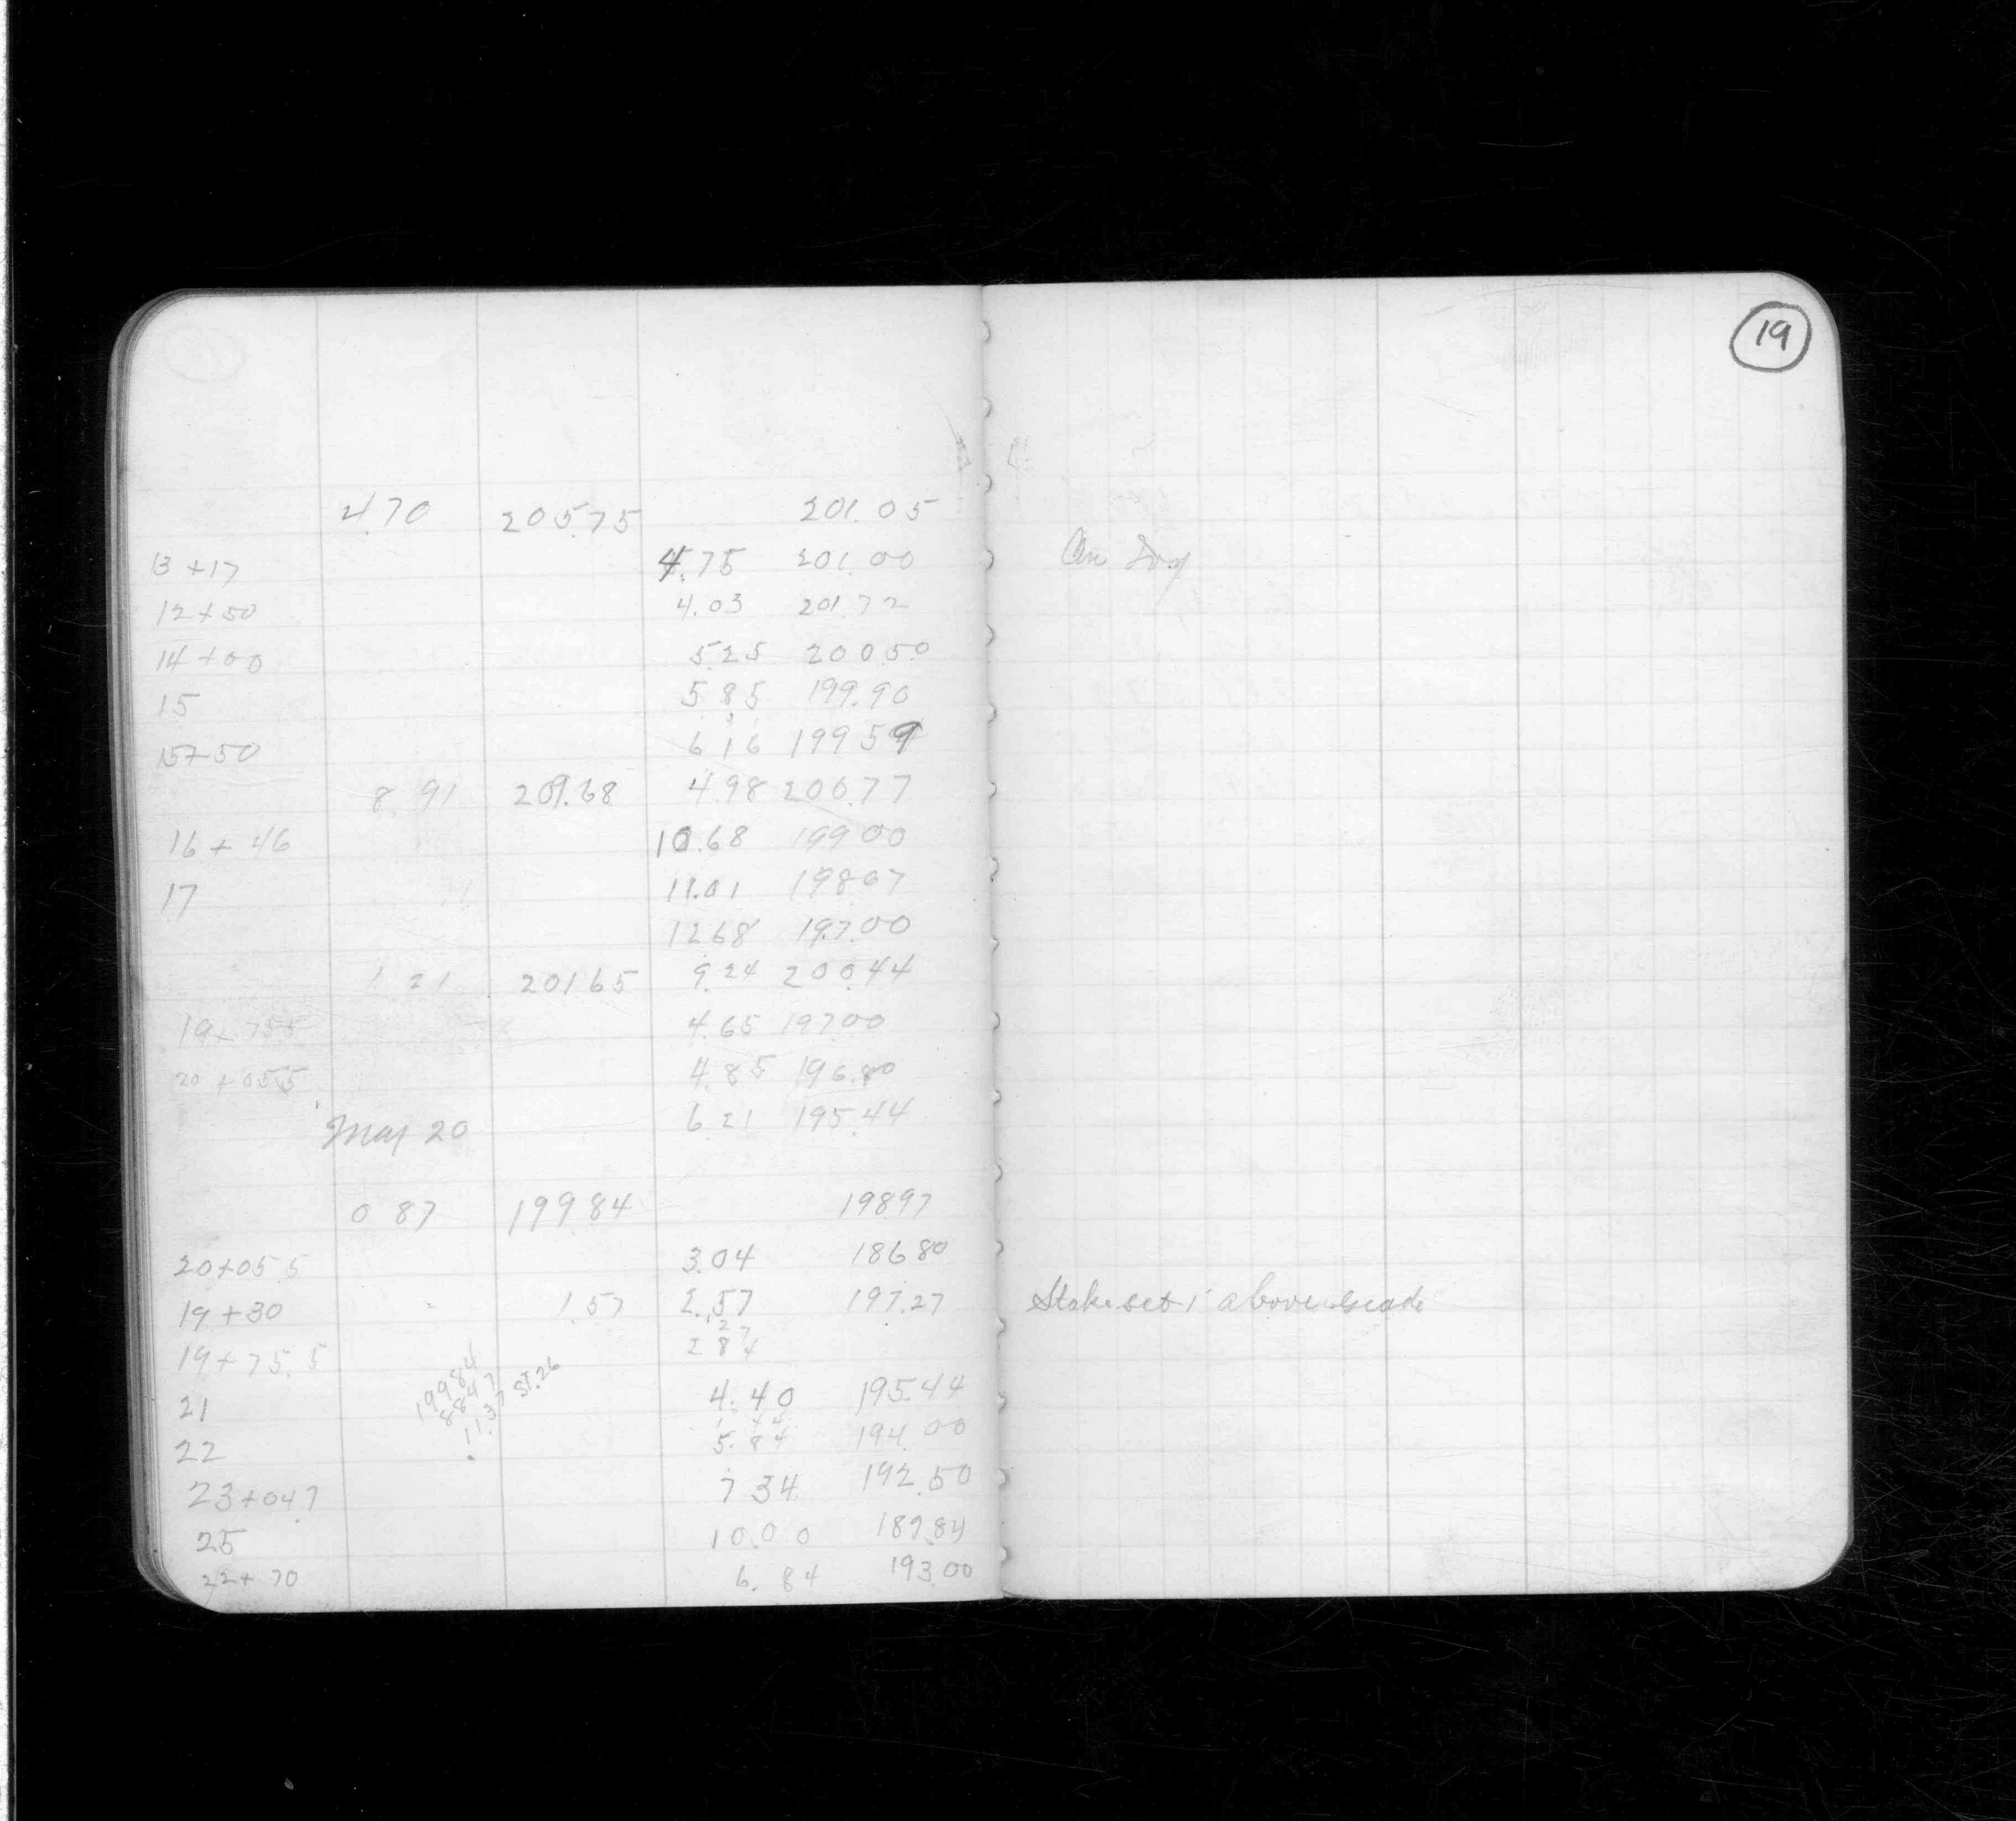 19
4.70 205.75 201.05
13+17 4.75 201.00 On
12+50 4.03 201.72
14+00 5.25 200.50
15 5.85 199.90
15+50 6.16 199.59
8.91 209.68 4.98 200.77
16+46 10.68 199.00
17 11.01 198.67
12.68 197.00
1.21 201.65 9.24 200.44
19+75.5 4.65 197.00
20+05.5 4.85 196.80
6.21 195.44
May 20
0.87 199.84 198.97
20+05.5 3.04 186.80
19+30 1.57 2.57 197.27 Stake set 1' above Grade
27
19+75.5 2 84
21 4.40 195.44
1 44
22 5.84 194.00
23+04.7 7.34 192.50
25 10.00 189.84
22+70 6.84 193.00
199.84
188.47 ST.26
11.37